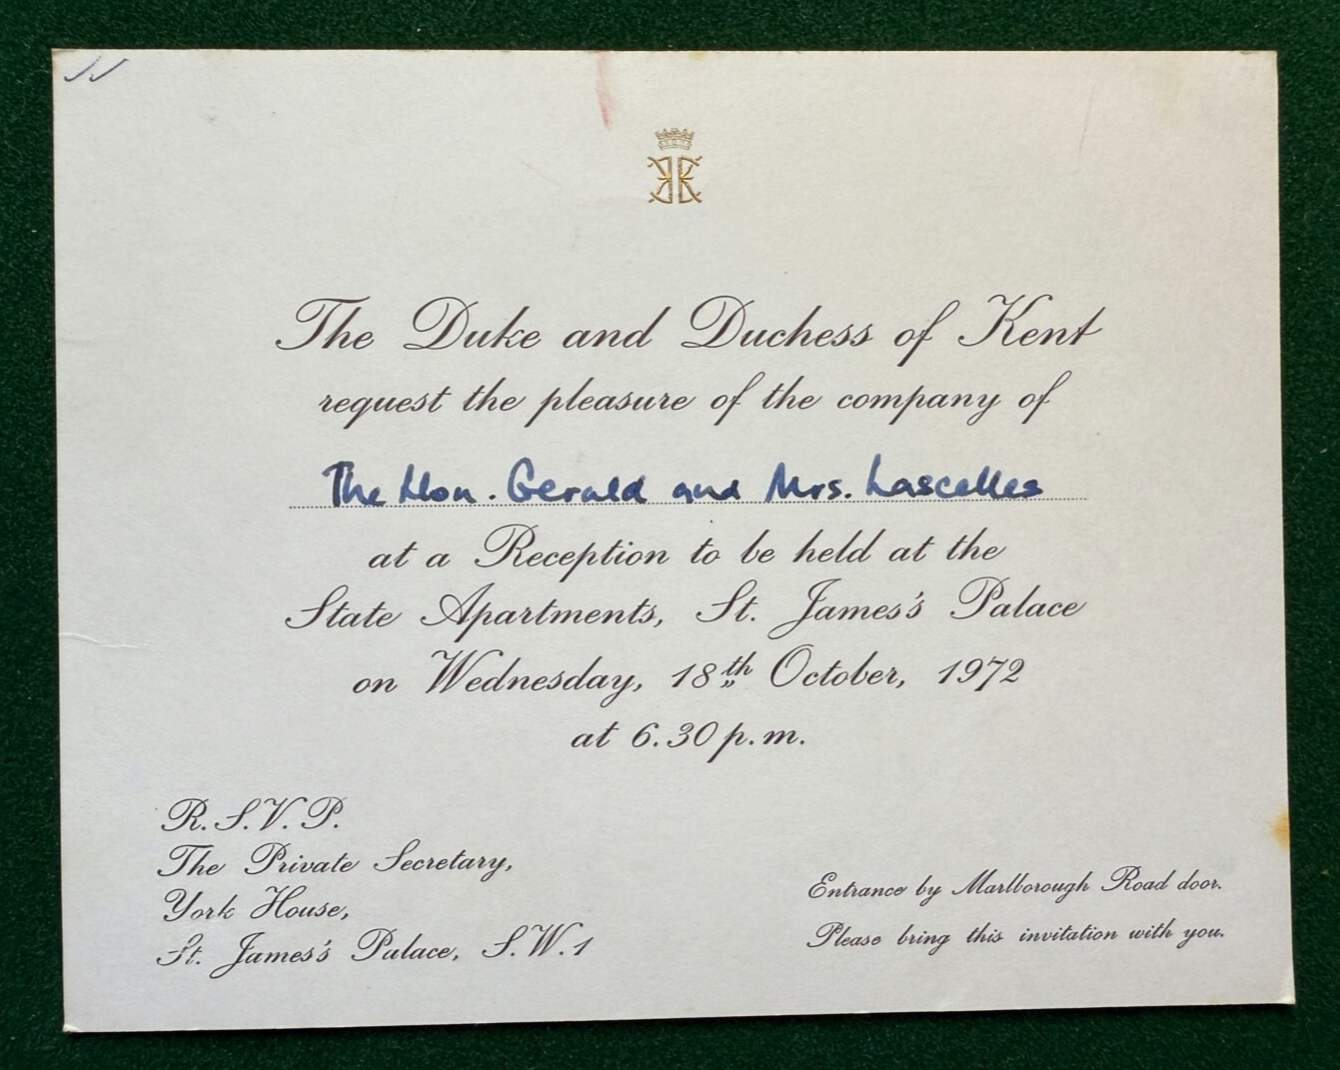 The Duke and Duchess of Kent
request the pleasure of the company of
The Hon. Gerald and Mrs. Lascelles
at a Reception to be held at the
State Apartments, St. James's Palace
on Wednesday, 18th October, 1972
at 6.30 p.m.
R.S.V.P.
The Private Secretary,
York House,
St. James's Palace, S.W.1
Entrance by Marlborough Road door.
Please bring this invitation with you.